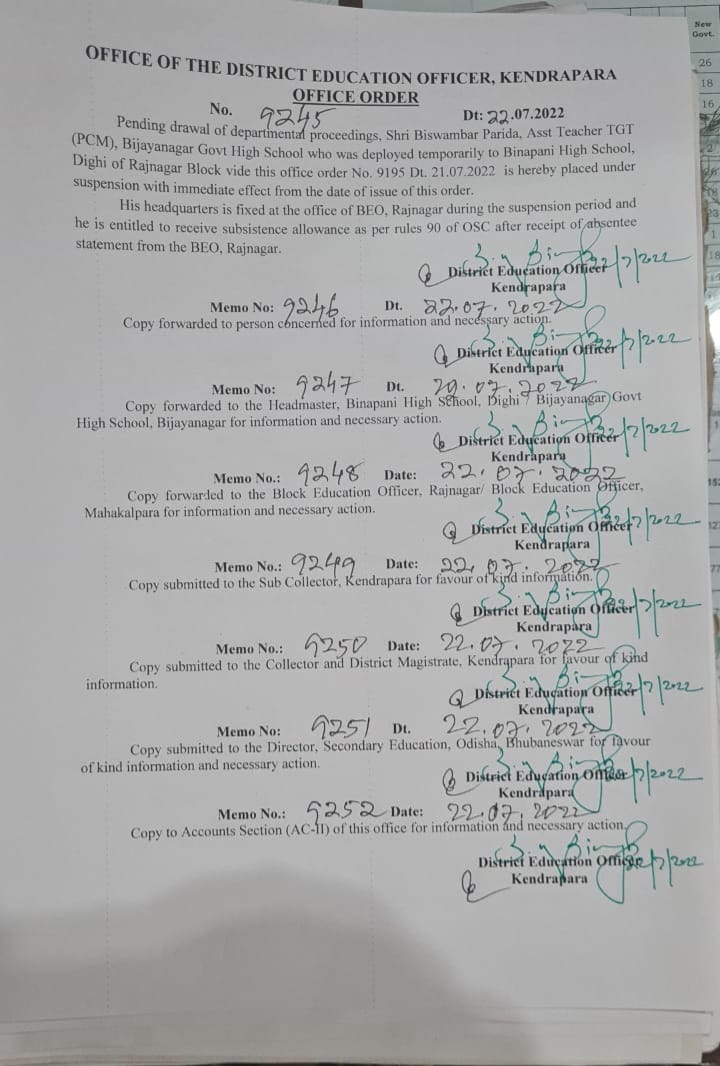 OFFICE OF THE DISTRICT EDUCATION OFFICER, KENDRAPARA
OFFICE ORDER
No. 9245 Dt: 22.07.2022
Pending drawal of departmental proceedings, Shri Biswambar Parida, Asst Teacher TGT
(PCM), Bijayanagar Govt High School who was deployed temporarily to Binapani High School,
Dighi of Rajnagar Block vide this office order No. 9195 Dt. 21.07.2022 is hereby placed under
suspension with immediate effect from the date of issue of this order.
His headquarters is fixed at the office of BEO, Rajnagar during the suspension period and
he is entitled to receive subsistence allowance as per rules 90 of OSC after receipt of absentee
statement from the BEO, Rajnagar.
22/7/2022
District Education Officer
Kendrapara
Memo No: 9246 Dt. 22.07.2022
Copy forwarded to person concerned for information and necessary action.
22/7/2022
District Education Officer
Kendrapara
Memo No: 9247 Dt. 22.07.2022
Copy forwarded to the Headmaster, Binapani High School, Dighi / Bijayanagar Govt
High School, Bijayanagar for information and necessary action.
22/7/2022
District Education Officer
Kendrapara
Memo No.: 9248 Date: 22.07.2022
Copy forwarded to the Block Education Officer, Rajnagar/ Block Education Officer,
Mahakalpara for information and necessary action.
22/7/2022
District Education Officer
Kendrapara
Memo No.: 9249 Date: 22.07.2022
Copy submitted to the Sub Collector, Kendrapara for favour of kind information.
22/7/2022
District Education Officer
Kendrapara
Memo No.: 9250 Date: 22.07.2022
Copy submitted to the Collector and District Magistrate, Kendrapara for favour of kind
information.
22/7/2022
District Education Officer
Kendrapara
Memo No: 9251 Dt. 22.07.2022
Copy submitted to the Director, Secondary Education, Odisha, Bhubaneswar for favour
of kind information and necessary action.
22/7/2022
District Education Officer
Kendrapara
Memo No.: 9252 Date: 22.07.2022
Copy to Accounts Section (AC-II) of this office for information and necessary action.
22/7/2022
District Education Officer
Kendrapara
New
Govt.
26
18
16